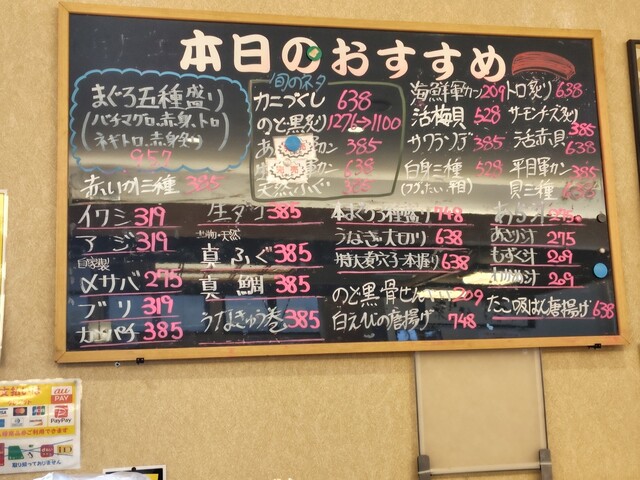 本日のおすすめ
まぐろ五種盛り
(バチマグロ、赤身、トロ
ネギトロ、赤身炙り)
957
赤いか三種 385
イワシ 319
アジ 319
自家製
〆サバ 275
ブリ 319
カンパチ 385
生ダコ 385
真ふぐ 385
真鯛 385
うなきゅう巻 385
旬のネタ
カニづくし 638
のど黒炙り 1276→1100
385
638
天然ふぐ
本まぐろ三種盛り 748
うなぎ一本大切り 638
特大煮穴子一本握り 638
のど黒骨せんべい 209
白えびの唐揚げ 748
海鮮軍カン 209
活梅貝 528
サワラタタキ 385
白身三種 528
トロ炙り 638
サーモンチーズ炙り
385
活赤貝 638
平目軍カン 385
貝三種 638
あら汁 275
あさり汁 275
もずく汁 209
わかめ汁 209
たこ唐揚げ 638
au PAY
VISA
PayPay
取り扱っておりません